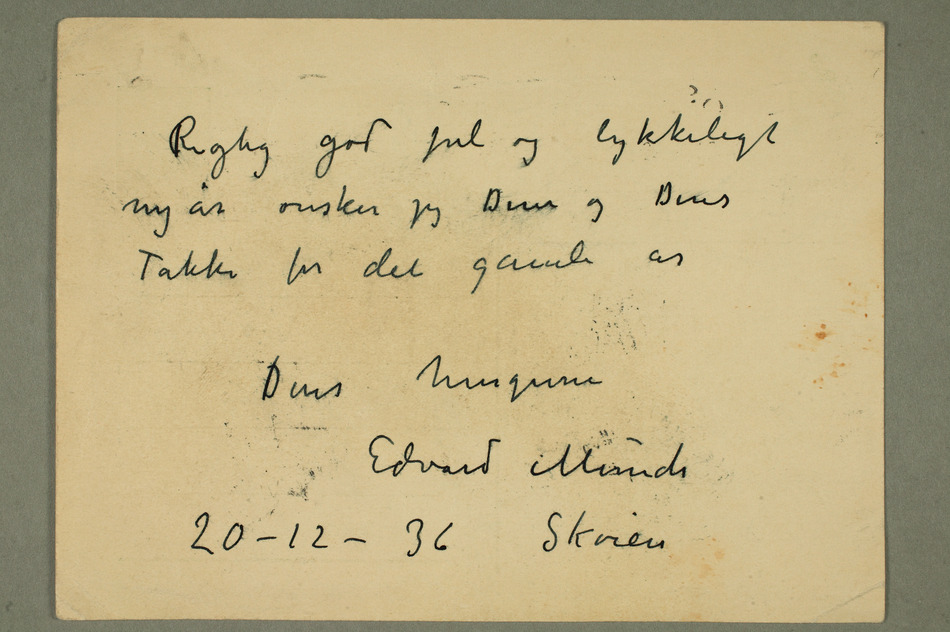 Rigtig god jul og lykkeligt
ny år ønsker jeg Dem og Deres
Takke for det gamle år
Deres hengivne
Edvard Munch
20-12-36 Skøien